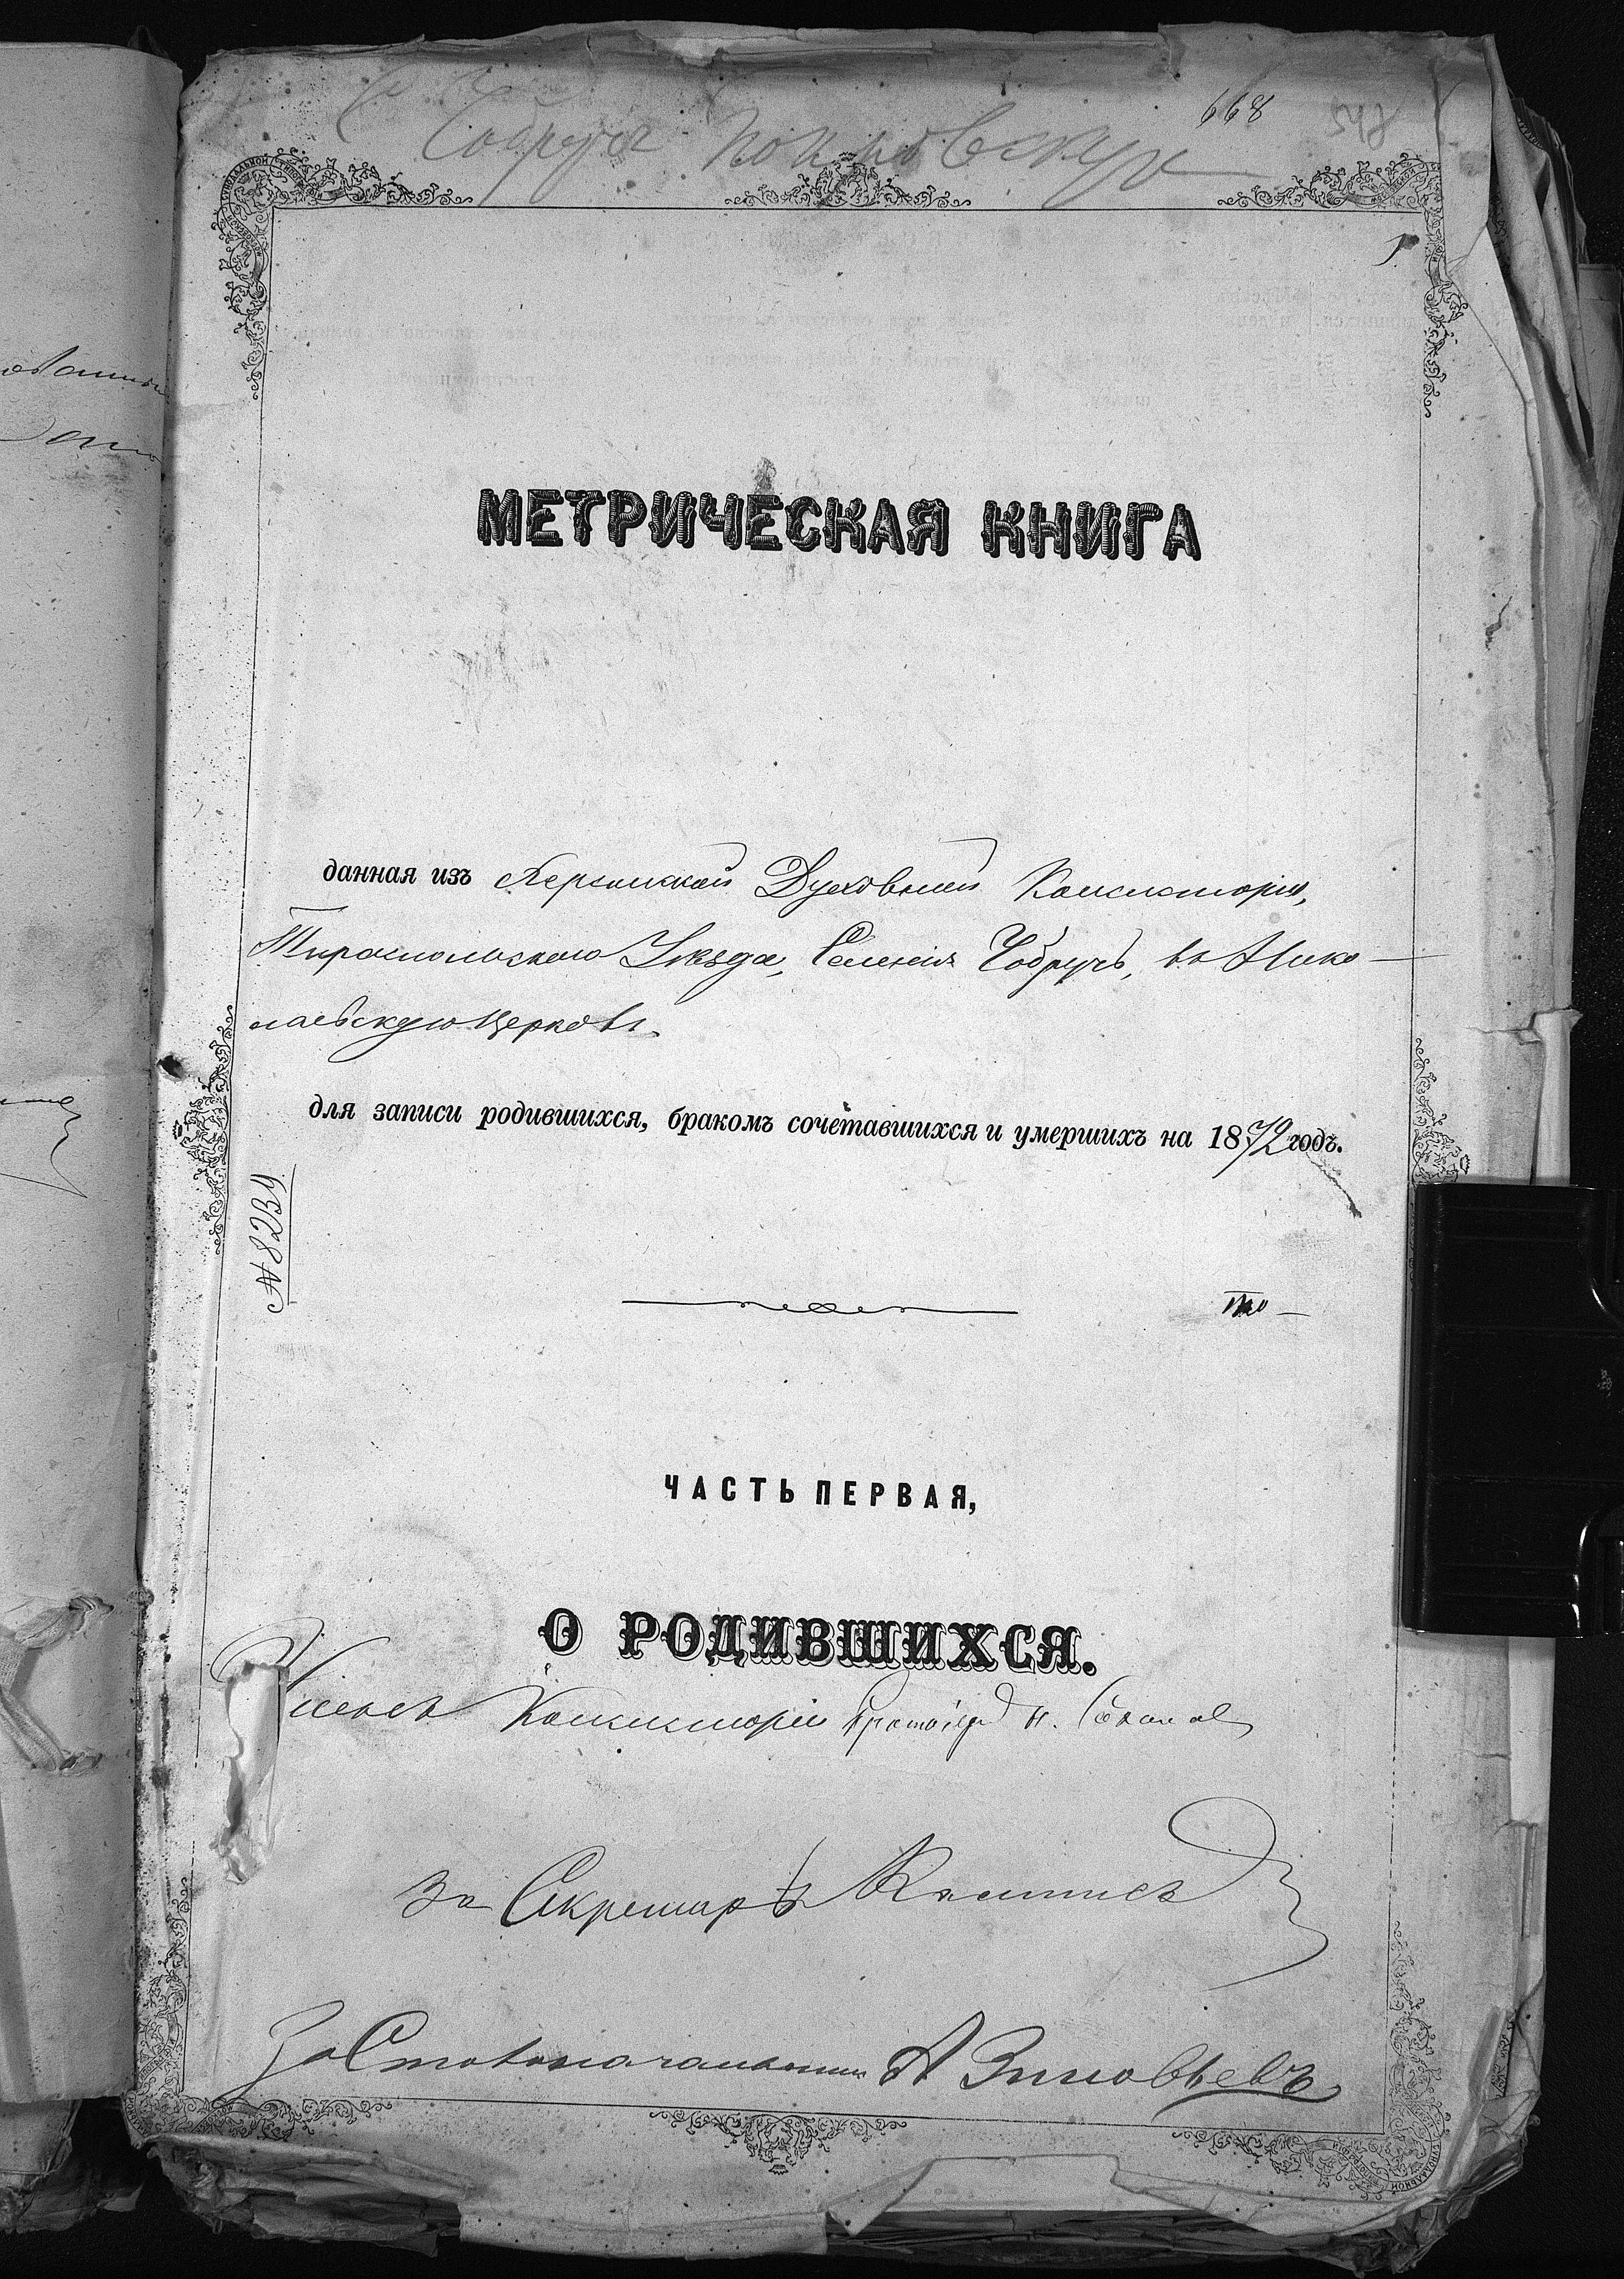 668
Чобручи Покровскую
МЕТРИЧЕСКАЯ КНИГА
данная изъ Херсонской Духовной Консисторіи,
Тираспольскаго Уѣзда, Селенія Чобручъ, въ Нико-
лаевскую Церковь
для записи родившихся, бракомъ сочетавшихся и умершихъ на 1872 годъ.
№ 8239
по-
ЧАСТЬ ПЕРВАЯ,
О РОДИВШИХСЯ.
Членъ Консисторіи Протоіерей Н. Соколов
За Секретаря
За Столоначальника А Зиновьевъ